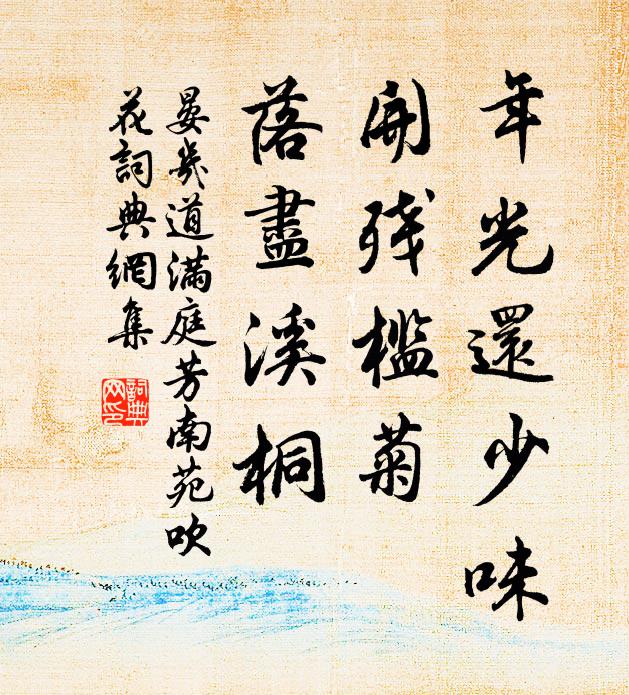 年光還少味
開殘檻菊
落盡溪桐
晏幾道滿庭芳南苑吹
花詞典網集
詞典
网印